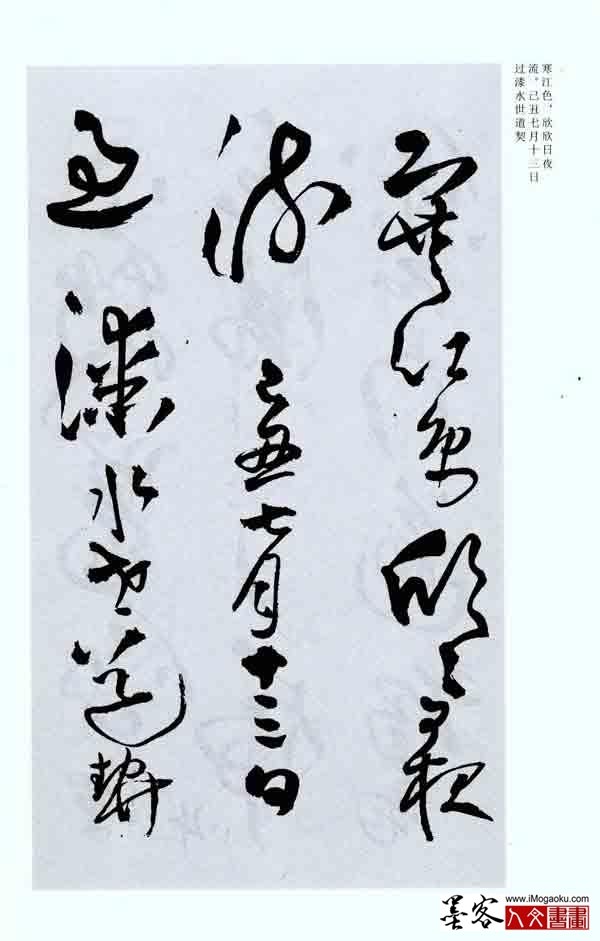 寒江色，欣欣日夜
流。己丑七月十三日
过漆水世道契
寒江色欣欣日夜
流己丑七月十三日
过漆水世道契
www.iMogaoku.com
墨客人文書畫